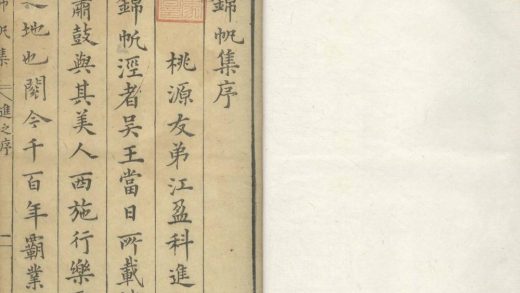 錦帆集序
桃源友弟江盈科進
錦帆涇者吳王當日所載
簫鼓與其美人西施行樂
地也闊今千百年霸業
帆集 進之序 一